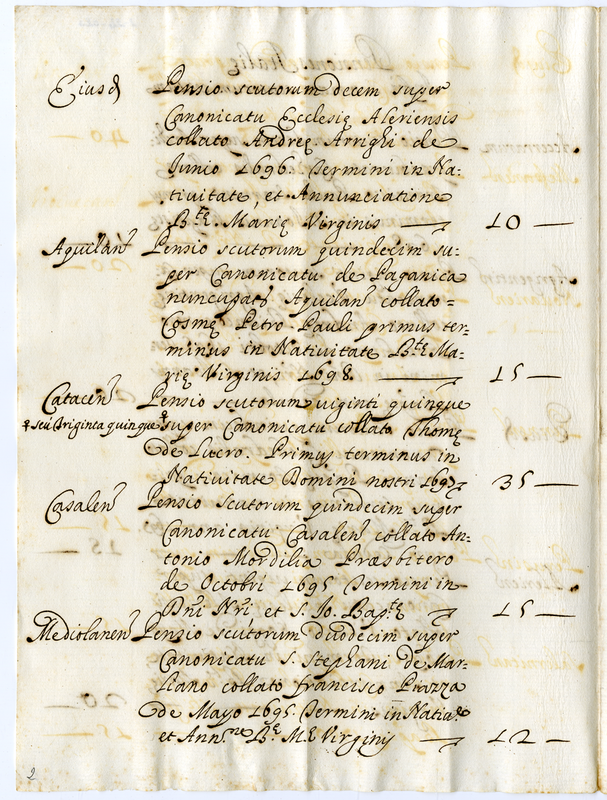 Eiusd Pensio scutorum decem super
Canonicatu Ecclesię Aleriensis
collato Andreę Arrighi de
Junio 1696. Termini in Na:
tivitate, et Annunciatione
B.tę Marię Virginis 10
Aquilan Pensio scutorum quindecim su:
per Canonicatu de Paganica
nuncupat Aquilan collato=
Cosmę Petro Pauli primus ter:
minus in Nativitate B.tę Ma:
rię Virginis 1698. 15
Catacen Pensio scutorum viginti quinque
seu triginta quinque super Canonicatu collato Thomę
de Lucro. Primus terminus in
Nativitate Domini nostri 1697 35
Casalen Pensio scutorum quindecim super
Canonicatu Casalen collato An:
tonio Mordilia Præsbitero
de Octobri 1695 Termini in
Dni Nri, et S. Jo. Bap.tę 15
Mediolanen Pensio scutorum duodecim super
Canonicatu S. Stephani de Mar:
liano collato Francisco Piazza
de Mayo 1695. Termini in
et Ann.ne B.ę M.ę Virginis 12
2